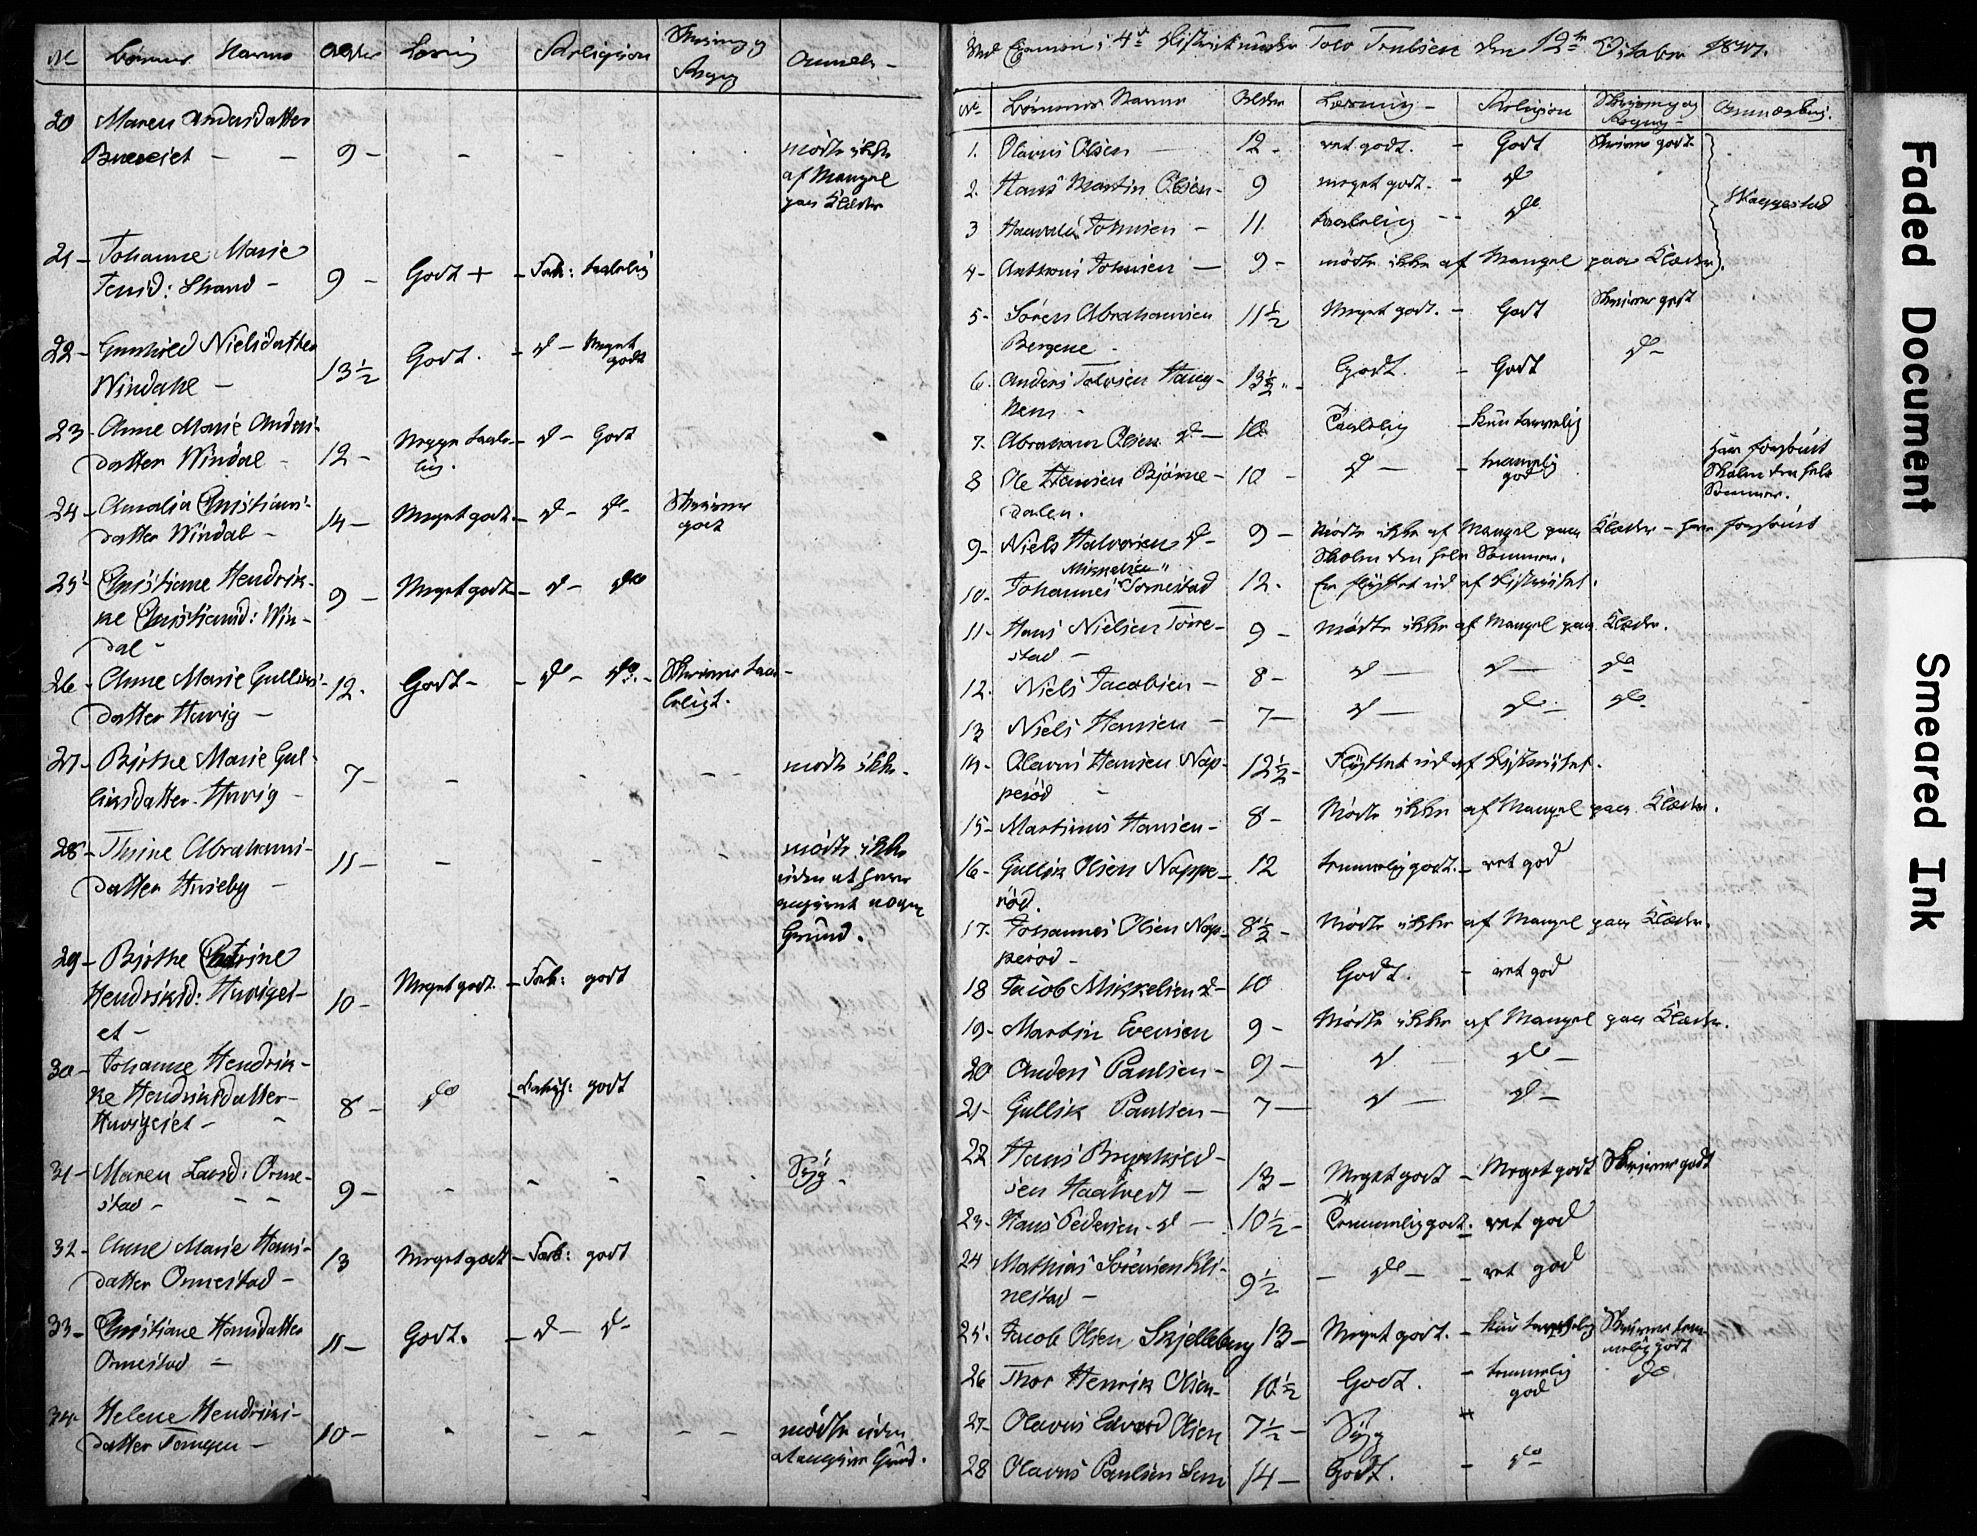 No Børnenes Navne Alder Læsning Religion Skrivning og Regng Anmærk-
20 Maren Andersdatter
Brueeiet - - 9 - - - mødte ikke
af Mangel
paa Klæder
21 - Johanne Marie
Jensd: Strand - 9 - Godt + - Forb: taalelig
22 - Gunhild Nielsdatter
Windahl - 13½ Godt. - do - Meget godt
23 - Anne Marie Anders-
datter Windal - 12 - Megge taale-
lig. - do - Godt
24 - Amalia Christians-
datter Windal - 14 - Meget godt - do - do - Skriver godt
25 - Christiane Hendrik-
ke Christiansd: Win-
dal - 9 - Meget godt - do - do
26 - Anne Marie Gulliks-
datter Huvig - 12. Godt - - do - do. - Skriver taa-
leligt.
27 - Birthe Marie Gul-
liksdatter Huvig - 7 - - - - mødte ikke.
28 - Thrine Abrahams-
datter Huseby - 11 - - - mødte ikke
uden at have
angivet nogen
Grund.
29 - Birthe Cathrine
Hendriksd: Huvigei-
et - 10 - Meget godt - Forb: godt
30 - Johanne Hendrik-
ke Hendriksdatter
Huvigeiet - 8 - do godt
31 - Maren Larsd: Orme-
stad - 9 - - - - Syg -
32 - Anne Marie Hans-
datter Ormestad - 13 Meget godt - Forb: godt
33 - Christiane Hansdatter
Ormestad - 11 - Godt. - do - do -
34 - Helene Hendriks-
datter 10 - - - - mødte uden
at angive Grund.
Ved Examen i 4de District under Tolv Trulsen den 12te October 1837.
No Børnenes Navne Alder Læsning - Religion Skrivning og Regng - Anmærkning.
1. Olavus Olsen - 12 - ret godt. - Godt Skriver godt
2. Hans Martin Olsen - 9 meget godt. - do
Skaggestad
3 Johnsen - 11. taalelig - do
4 - Anthon Johnsen - 9 - mødte ikke af Mangel paa Klæder.
5 - Søren Abrahamsen
Bergene - 11½ Meget godt. - Godt Skriver godt
6. Anders Tolvsen Haug-
nem - 13½ - Godt. - Godt do -
7. Abraham Olsen do - 10. Taalelig - kun tarvelig
8 Ole Hansen Bjørne-
dalen. 10 - do - - temmelig god
har forsømt
Skolen den hele
Sommer.
9 - Niels Halvorsen do - 9 - Mødte ikke af Mangel paa Klæder - har forsømt
Skolen den hele Sommer.
Mikkelsen
10 - Johannes Tornestad 12. Er flyttet ud af Districtet.
11 - Hans Nielsen Torre-
stad - 9 - mødte ikke af Mangel paa Klæder.
12. Niels Jacobsen - 8 - do - do - do
13 Niels Hansen - 7 - do - do - do
14 - Olavus Hansen Nap-
perød - 12½ - Flyttet ud af Districtet.
15 - Martinus Hansen - 8 - Mødte ikke af Mangel paa Klæder.
16 - Gullik Olsen Nappe-
rød. 12 temmelig godt. - ret god
17 - Johannes Olsen Nap-
perød - 8½ - Mødte ikke af Mangel paa Klæder.
18 Jacob Mikkelsen do - 10 Godt. - ret god
19 - Martin Evensen 9 - Mødte ikke af Mangel paa Klæder.
20 Anders Paulsen - 9 - do - do -
21 - Gullik Paulsen - 7 - do - do -
22 Hans Brynhild-
sen Haatvedt - 13 - Meget godt - Meget godt Skriver godt
23 - Hans Pedersen do - 10½ - Temmelig godt. ret god
24 Mathias Sørensen Kli-
nestad - 9½ - do - - ret god
25. Jacob Olsen Skjelleberg 13 - Meget godt. - kun tarvelig Skriver tem-
melig godt
26 Thor Henrik Olsen - 10½ Godt. - temmelig god do
27 - Olavus Edvard Olsen 7½ - Syg
28 Olavus Paulsen Sem 14 - Godt. - do
Faded Document
Smeared Ink